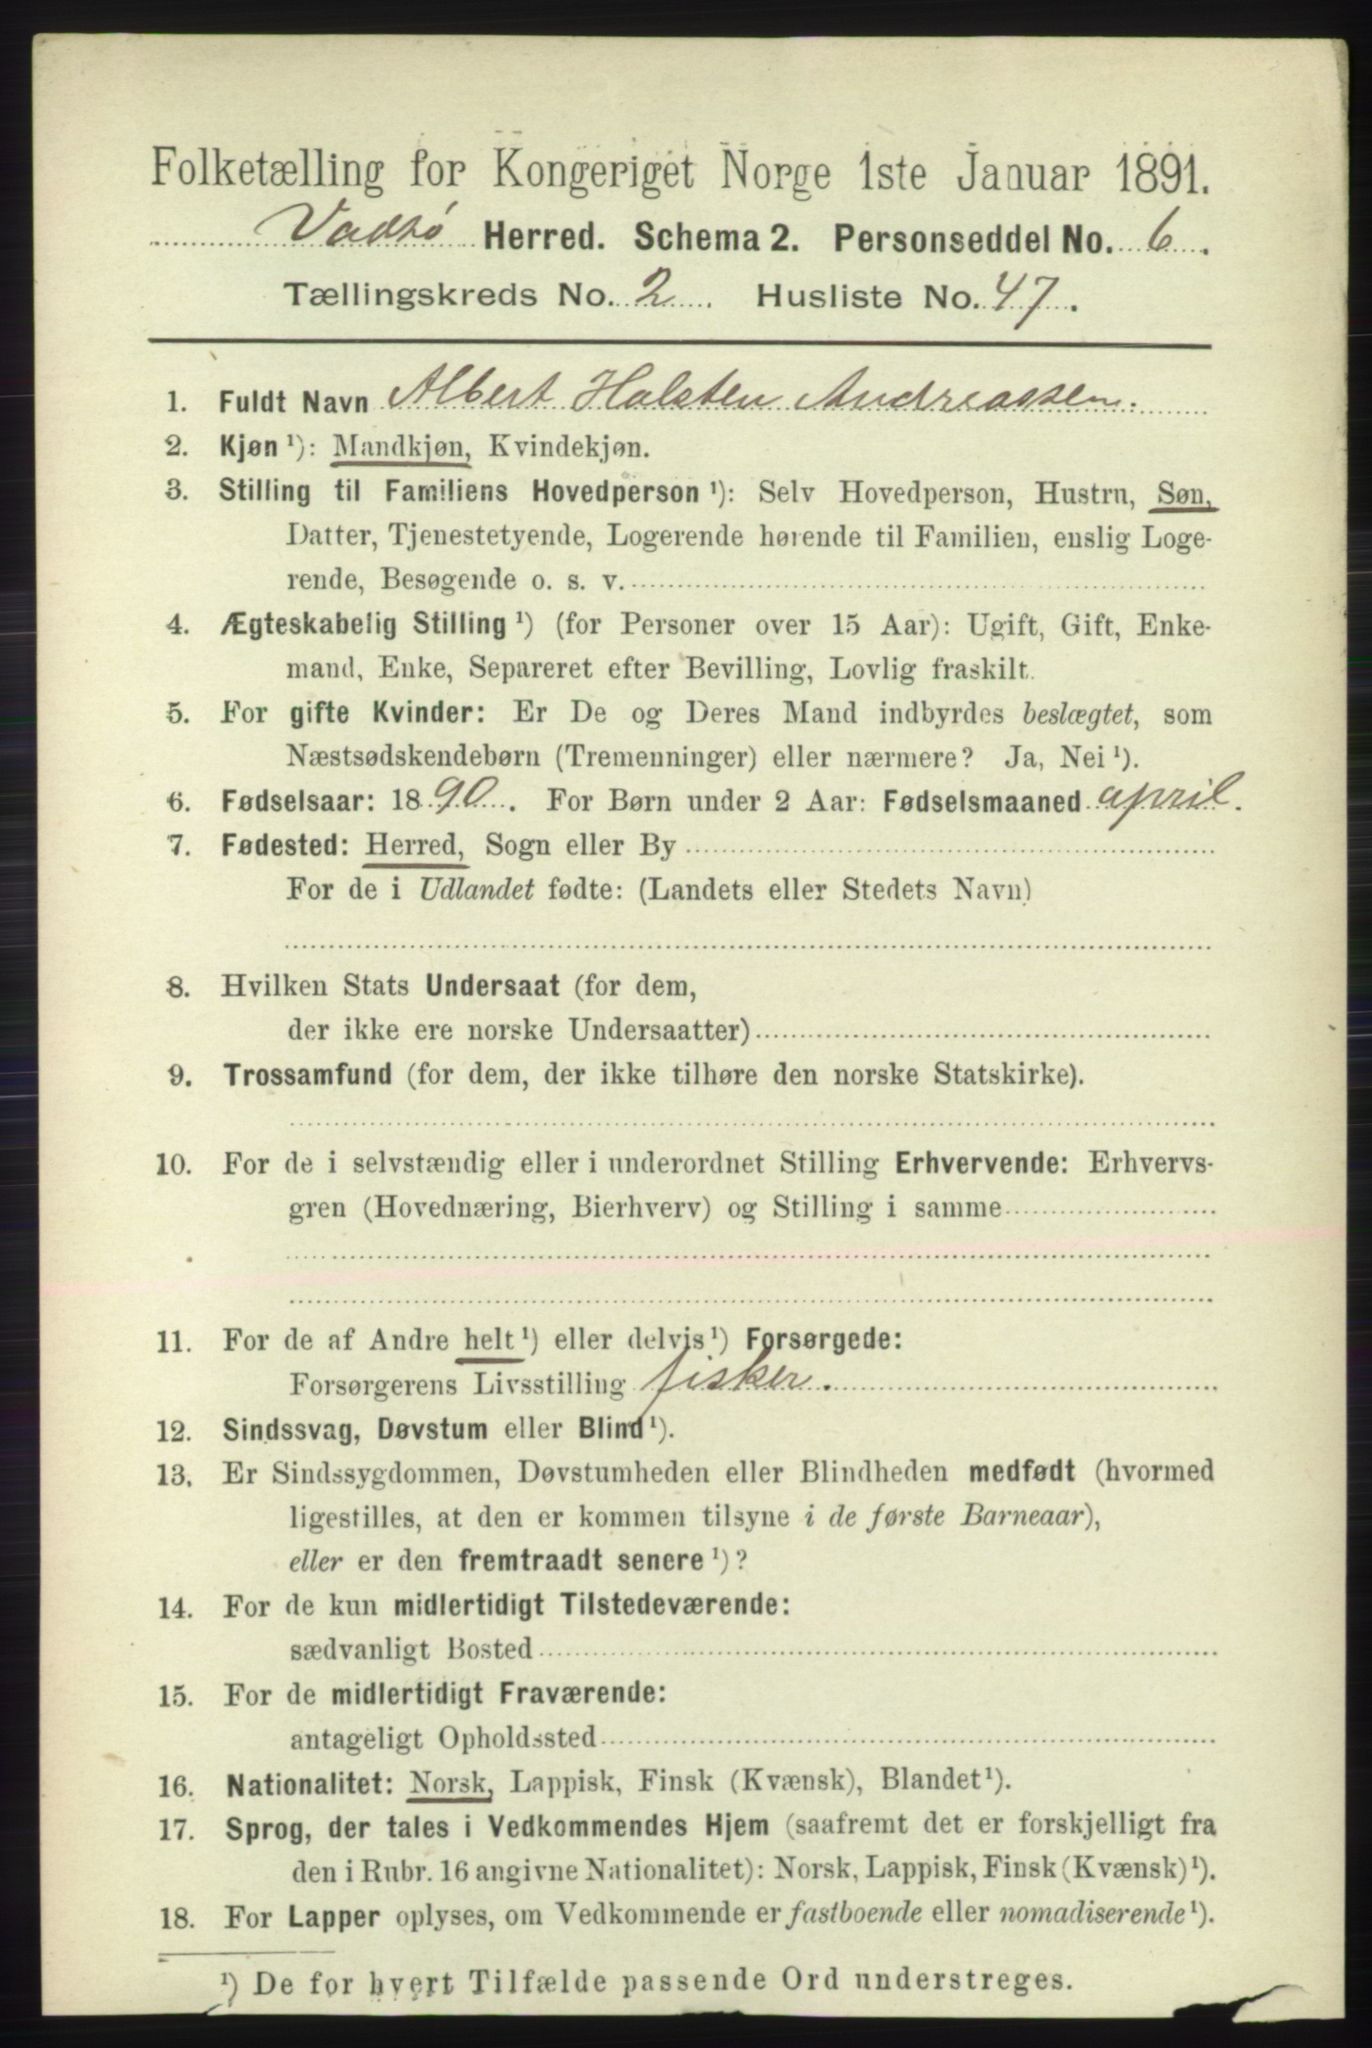 Folketælling for Kongeriget Norge 1ste Januar 1891.
Vadsø Herred. Schema 2. Personseddel No. 6.
Tællingskreds No. 2. Husliste No. 47.
1. Fuldt Navn Albert Halsten Andreassen.
2. Kjøn ¹): Mandkjøn, Kvindekjøn.
3. Stilling til Familiens Hovedperson ¹): Selv Hovedperson, Hustru, Søn,
Datter, Tjenestetyende, Logerende hørende til Familien, enslig Loge-
rende, Besøgende o. s. v.
4. Ægteskabelig Stilling ¹) (for Personer over 15 Aar): Ugift, Gift, Enke-
mand, Enke, Separeret efter Bevilling, Lovlig fraskilt.
5. For gifte Kvinder: Er De og Deres Mand indbyrdes beslægtet, som
Næstsødskendebørn (Tremenninger) eller nærmere? Ja, Nei ¹).
6. Fødselsaar: 1890. For Børn under 2 Aar: Fødselsmaaned april.
7. Fødested: Herred, Sogn eller By
For de i Udlandet fødte: (Landets eller Stedets Navn)
8. Hvilken Stats Undersaat (for dem,
der ikke ere norske Undersaatter)
9. Trossamfund (for dem, der ikke tilhøre den norske Statskirke).
10. For de i selvstændig eller i underordnet Stilling Erhvervende: Erhvervs-
gren (Hovednæring, Bierhverv) og Stilling i samme
11. For de af Andre helt ¹) eller delvis ¹) Forsørgede:
Forsørgerens Livsstilling fisker.
12. Sindssvag, Døvstum eller Blind ¹).
13. Er Sindssygdommen, Døvstumheden eller Blindheden medfødt (hvormed
ligestilles, at den er kommen tilsyne i de første Barneaar),
eller er den fremtraadt senere ¹)?
14. For de kun midlertidigt Tilstedeværende:
sædvanligt Bosted
15. For de midlertidigt Fraværende:
antageligt Opholdssted
16. Nationalitet: Norsk, Lappisk, Finsk (Kvænsk), Blandet ¹).
17. Sprog, der tales i Vedkommendes Hjem (saafremt det er forskjelligt fra
den i Rubr. 16 angivne Nationalitet): Norsk, Lappisk, Finsk (Kvænsk) ¹).
18. For Lapper oplyses, om Vedkommende er fastboende eller nomadiserende ¹).
¹) De for hvert Tilfælde passende Ord understreges.